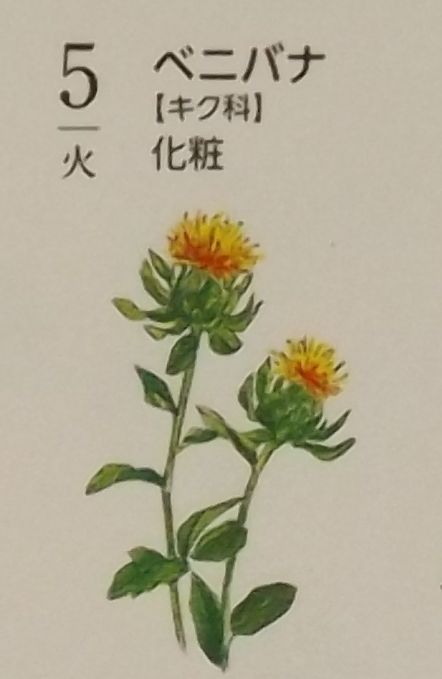 5
火
ベニバナ
【キク科】
化粧